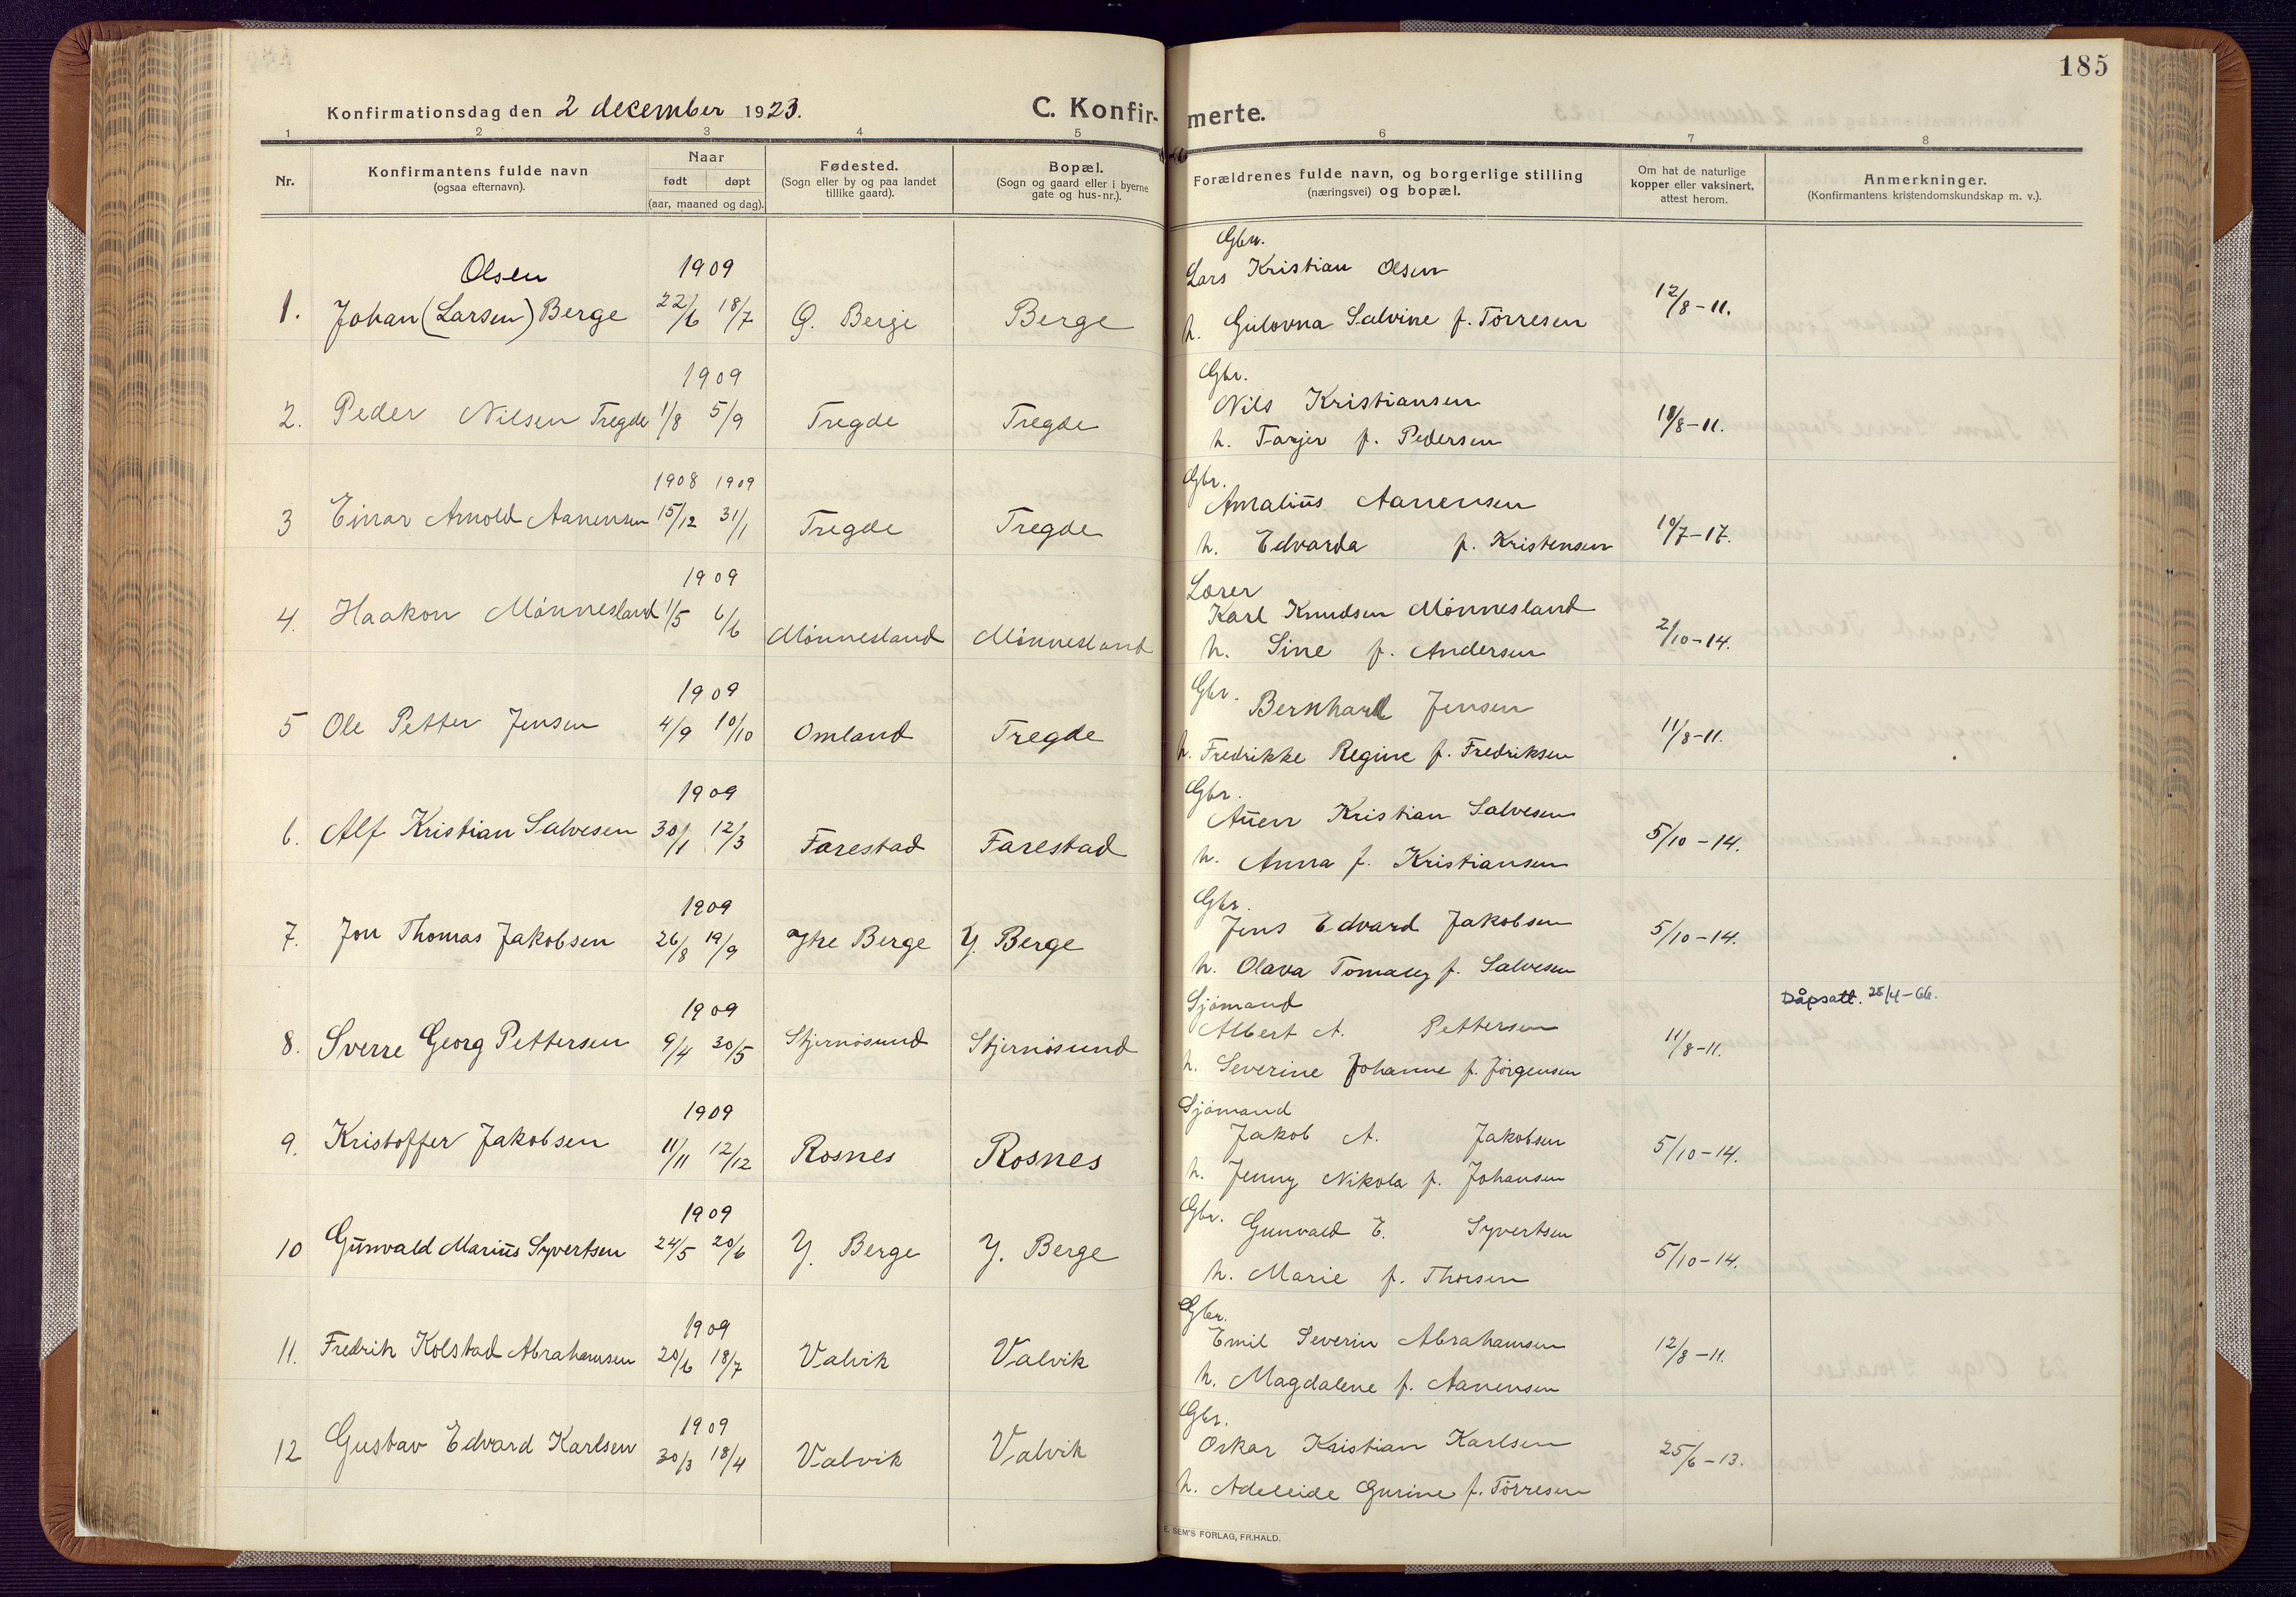 185
Konfirmationsdag den 2 december 1923. C. Konfir- merte.
1 2 3 4 5 6 7 8
Nr. Konfirmantens fulde navn (ogsaa efternavn). Naar født døpt (aar, maaned og dag). Fødested. (Sogn eller by og paa landet tillike gaard). Bopæl. (Sogn og gaard eller i byerne gate og hus-nr.). Forældrenes fulde navn, og borgerlige stilling (næringsvei) og bopæl. Om hat de naturlige kopper eller vaksinert, attest herom. Anmerkninger. (Konfirmantens kristendomskundskap m. v.).
Gbr.
Olsen 1909 Lars Kristian Olsen
1. Johan (Larsen) Berge 22/6 18/7 Ø. Berge Berge 12/8-11.
h. Gulovna Salvine f. Törresen
1909 Gbr.
Nils Kristiansen
2. Peder Nilsen Tregde 1/8 5/9 Tregde Tregde 18/8-11.
h. Tarjer f. Pedersen
1908 1909 Gbr.
Amalius Aanensen
3 Einar Arnold Aanensen 15/12 31/1 Tregde Tregde 10/7-17.
h. Edvarda f. Kristensen
1909 Lærer
Karl Knudsen Mönnesland
4. Haakon Mönnesland 1/5 6/6 Mönnesland Mönnesland 2/10-14.
h. Sine f. Andersen
1909 Gbr.
Bernhard Jensen
5 Ole Petter Jensen 4/9 10/10 Omland Tregde 11/8-11.
h. Fredrikke Regine f. Fredriksen
1909 Gbr.
Auen Kristian Salvesen
6. Alf Kristian Salvesen 30/1 12/3 Farestad Farestad 5/10-14.
h. Anna f. Kristiansen
1909 Gbr.
Jens Edvard Jakobsen
7. Jon Thomas Jakobsen 26/8 19/9 Ytre Berge Y. Berge 5/10-14.
h. Olava Tomacy f. Salvesen
1909 Sjömand Dåpsatt. 25/4-66.
Albert A. Pettersen
8. Sverre Georg Pettersen 9/4 30/5 Stjernösund Stjernösund 11/8-11.
h. Severine Johanne f. Jörgensen
1909 Sjömand
Jakob A. Jakobsen
9. Kristoffer Jakobsen 11/11 12/12 Rosnes Rosnes 5/10-14.
h. Jenny Nikola f. Johansen
1909 Gbr.
Gunvald E. Syvertsen
10 Gunvald Marius Syvertsen 24/5 20/6 Y. Berge Y. Berge 5/10-14.
h. Marie f. Thorsen
1909 Gbr.
Emil Severin Abrahamsen
11. Fredrik Kolstad Abrahamsen 20/6 18/7 Valvik Valvik 12/8-11.
h. Magdalene f. Aanensen
1909 Gbr.
Oskar Kristian Karlsen
12 Gustav Edvard Karlsen 30/3 18/4 Valvik Valvik 25/6-13.
h. Adeleide Gurine f. Törresen
E. SEM'S FORLAG, FR.HALD.